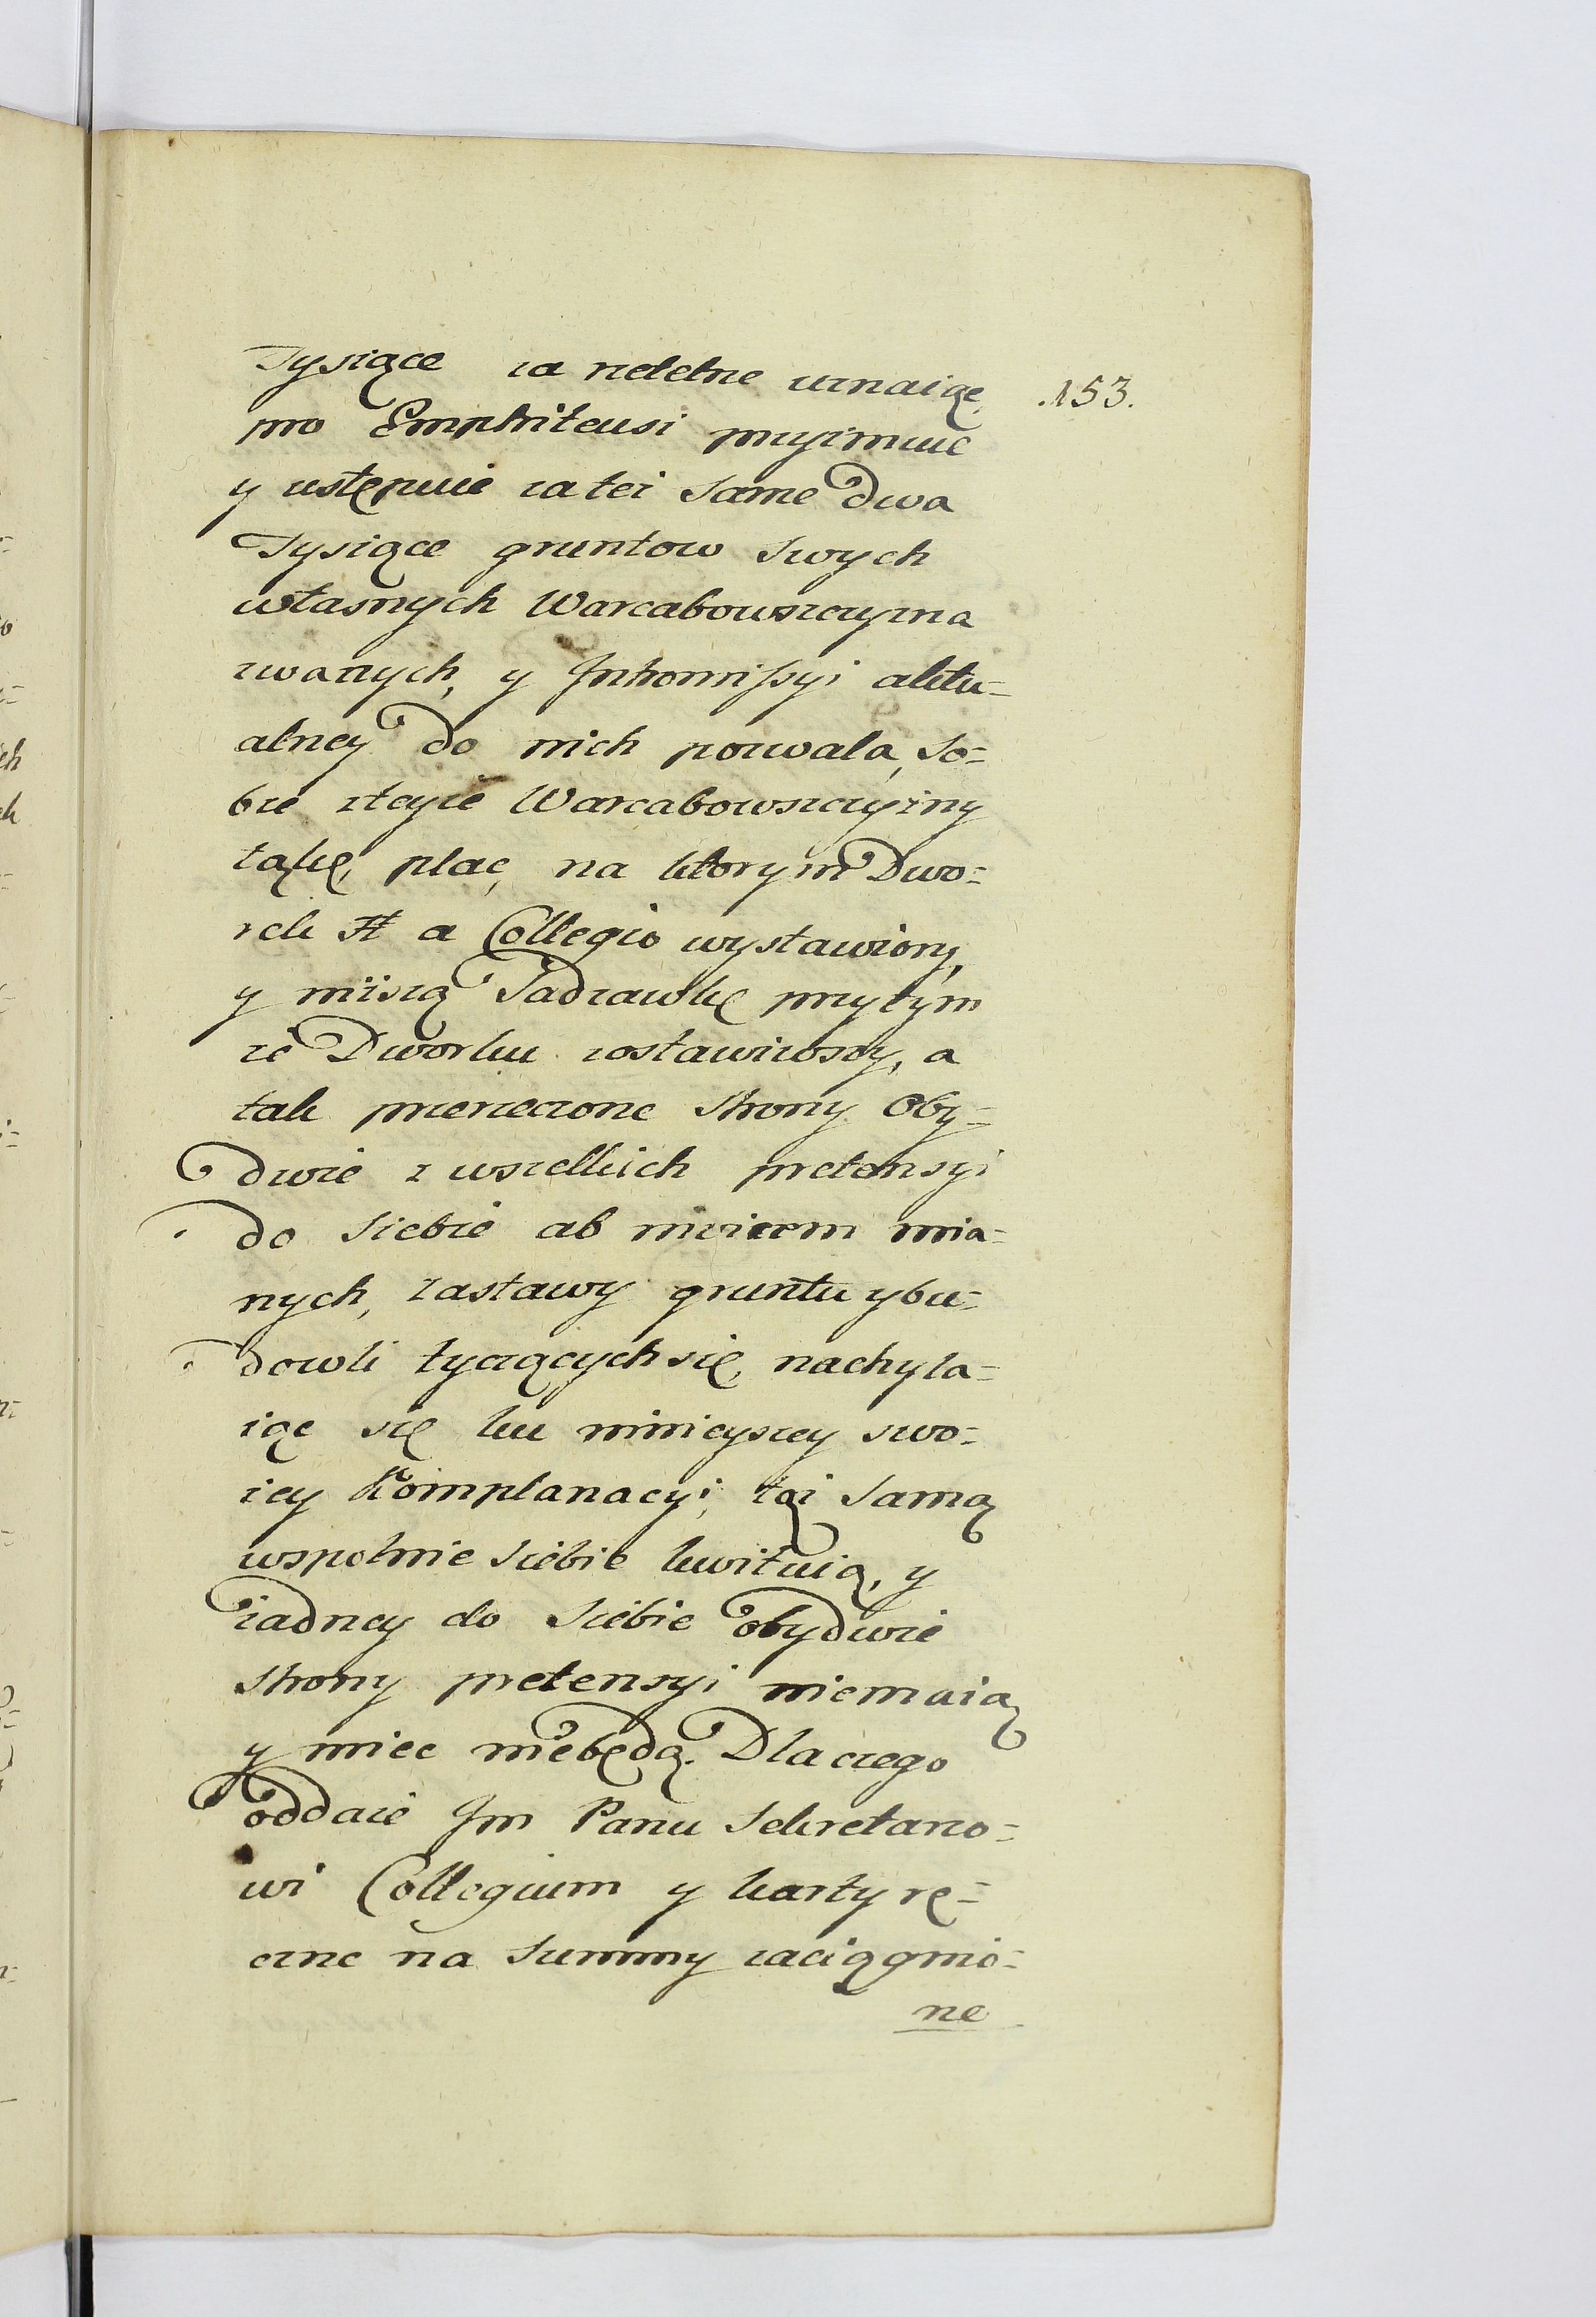 Tysiące za rzetelne uznaiąc .153.
pro Emphiteusi przyimuie
y ustępuie za tez same dwa
Tysiące gruntow swych
własnych Warcabowszczyzna
zwanych, y Intromissyi aktu=
alney do nich pozwala, so=
bie z teyże Warcabowszczyzny
także plac, na ktorym Dwo=
rek a Collegio wystawiony,
y niższą Sadzawkę przy tym
że Dworku zostawiwszy, a
tak przerzeczone Strony Oby=
dwie z wszelkich pretensyi
do siebie ab invicem mia=
nych, zastawy gruntu y bu=
dowli tyczących się, nachyla=
iąc się ku ninieyszey swo=
iey Komplanacyi, tąż samą
wspolnie siebie kwituią, y
żadney do siebie obydwie
strony pretensyi niemaią
y miec niebędą. Dla czego
oddaie Jm Panu Sekretarzo=
wi Collegium y karty rę=
czne na Summy zaciągnio=
ne